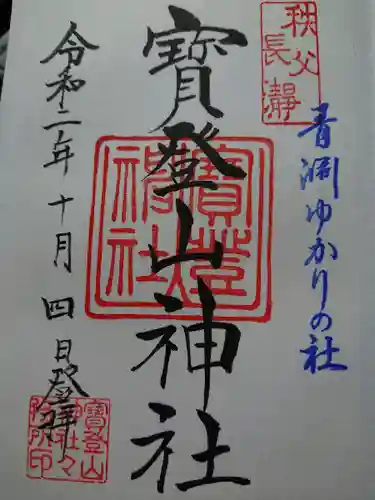 秩父
長瀞
青淵ゆかりの社
寳登山神社
寳登山神社
令和二年十月四日登拝
寳登山
神社々
務所印